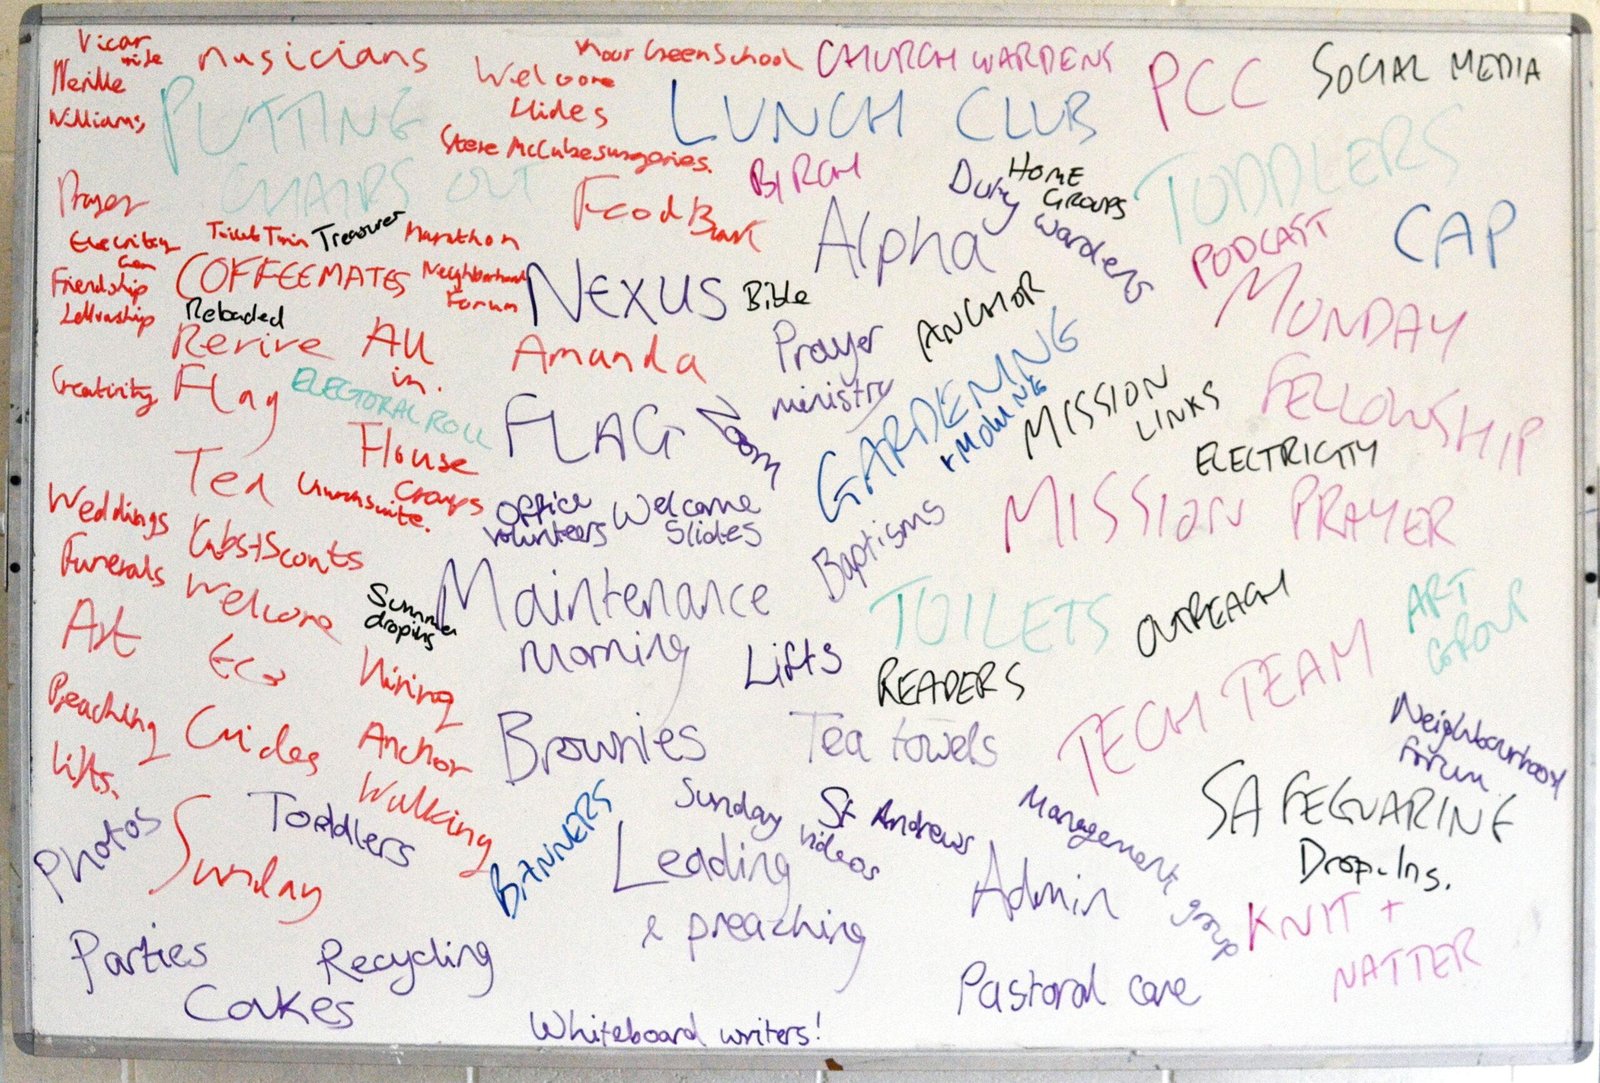 Vicar
Neville
Williams
musicians
Welcome
Slides
CHURCH WARDENS
PCC
SOCIAL MEDIA
PUTTING
CHAIRS OUT
LUNCH CLUB
BIRCH
Duty
wardens
HOME
GROUPS
TODDLERS
PODCAST
CAP
Prayer
Food Bank
Toilet Twin
Treasurer
Marathon
Friendship
COFFEEMATES
Neighborhood
Forum
NEXUS
Bible
Alpha
MONDAY
FELLOWSHIP
Reloaded
Revive
All
in.
Amanda
Prayer
ministry
ANCHOR
GARDENING
+ MOWING
MISSION
LINKS
Creativity
Flag
ELECTORAL ROLL
FLAG
Zoom
ELECTRICITY
Tea
House
Groups
Office
volunteers
Welcome
Slides
Baptisms
MISSION PRAYER
Weddings
Funerals
Cubs + Scouts
Welcome
Summer
dropins
Maintenance
morning
TOILETS
OUTREACH
ART
GROUP
Art
Eco
Hiring
Lifts
READERS
TECH TEAM
Preaching
Guides
Anchor
Walking
Brownies
Tea towels
Neighbourhood
forum
Lifts.
Photos
Sunday
Toddlers
BANNERS
Sunday
videos
St Andrews
Leading
& preaching
Management
group
Admin
SAFEGUARING
Drop-Ins.
KNIT +
NATTER
Parties
Recycling
Cakes
Pastoral care
Whiteboard writers!